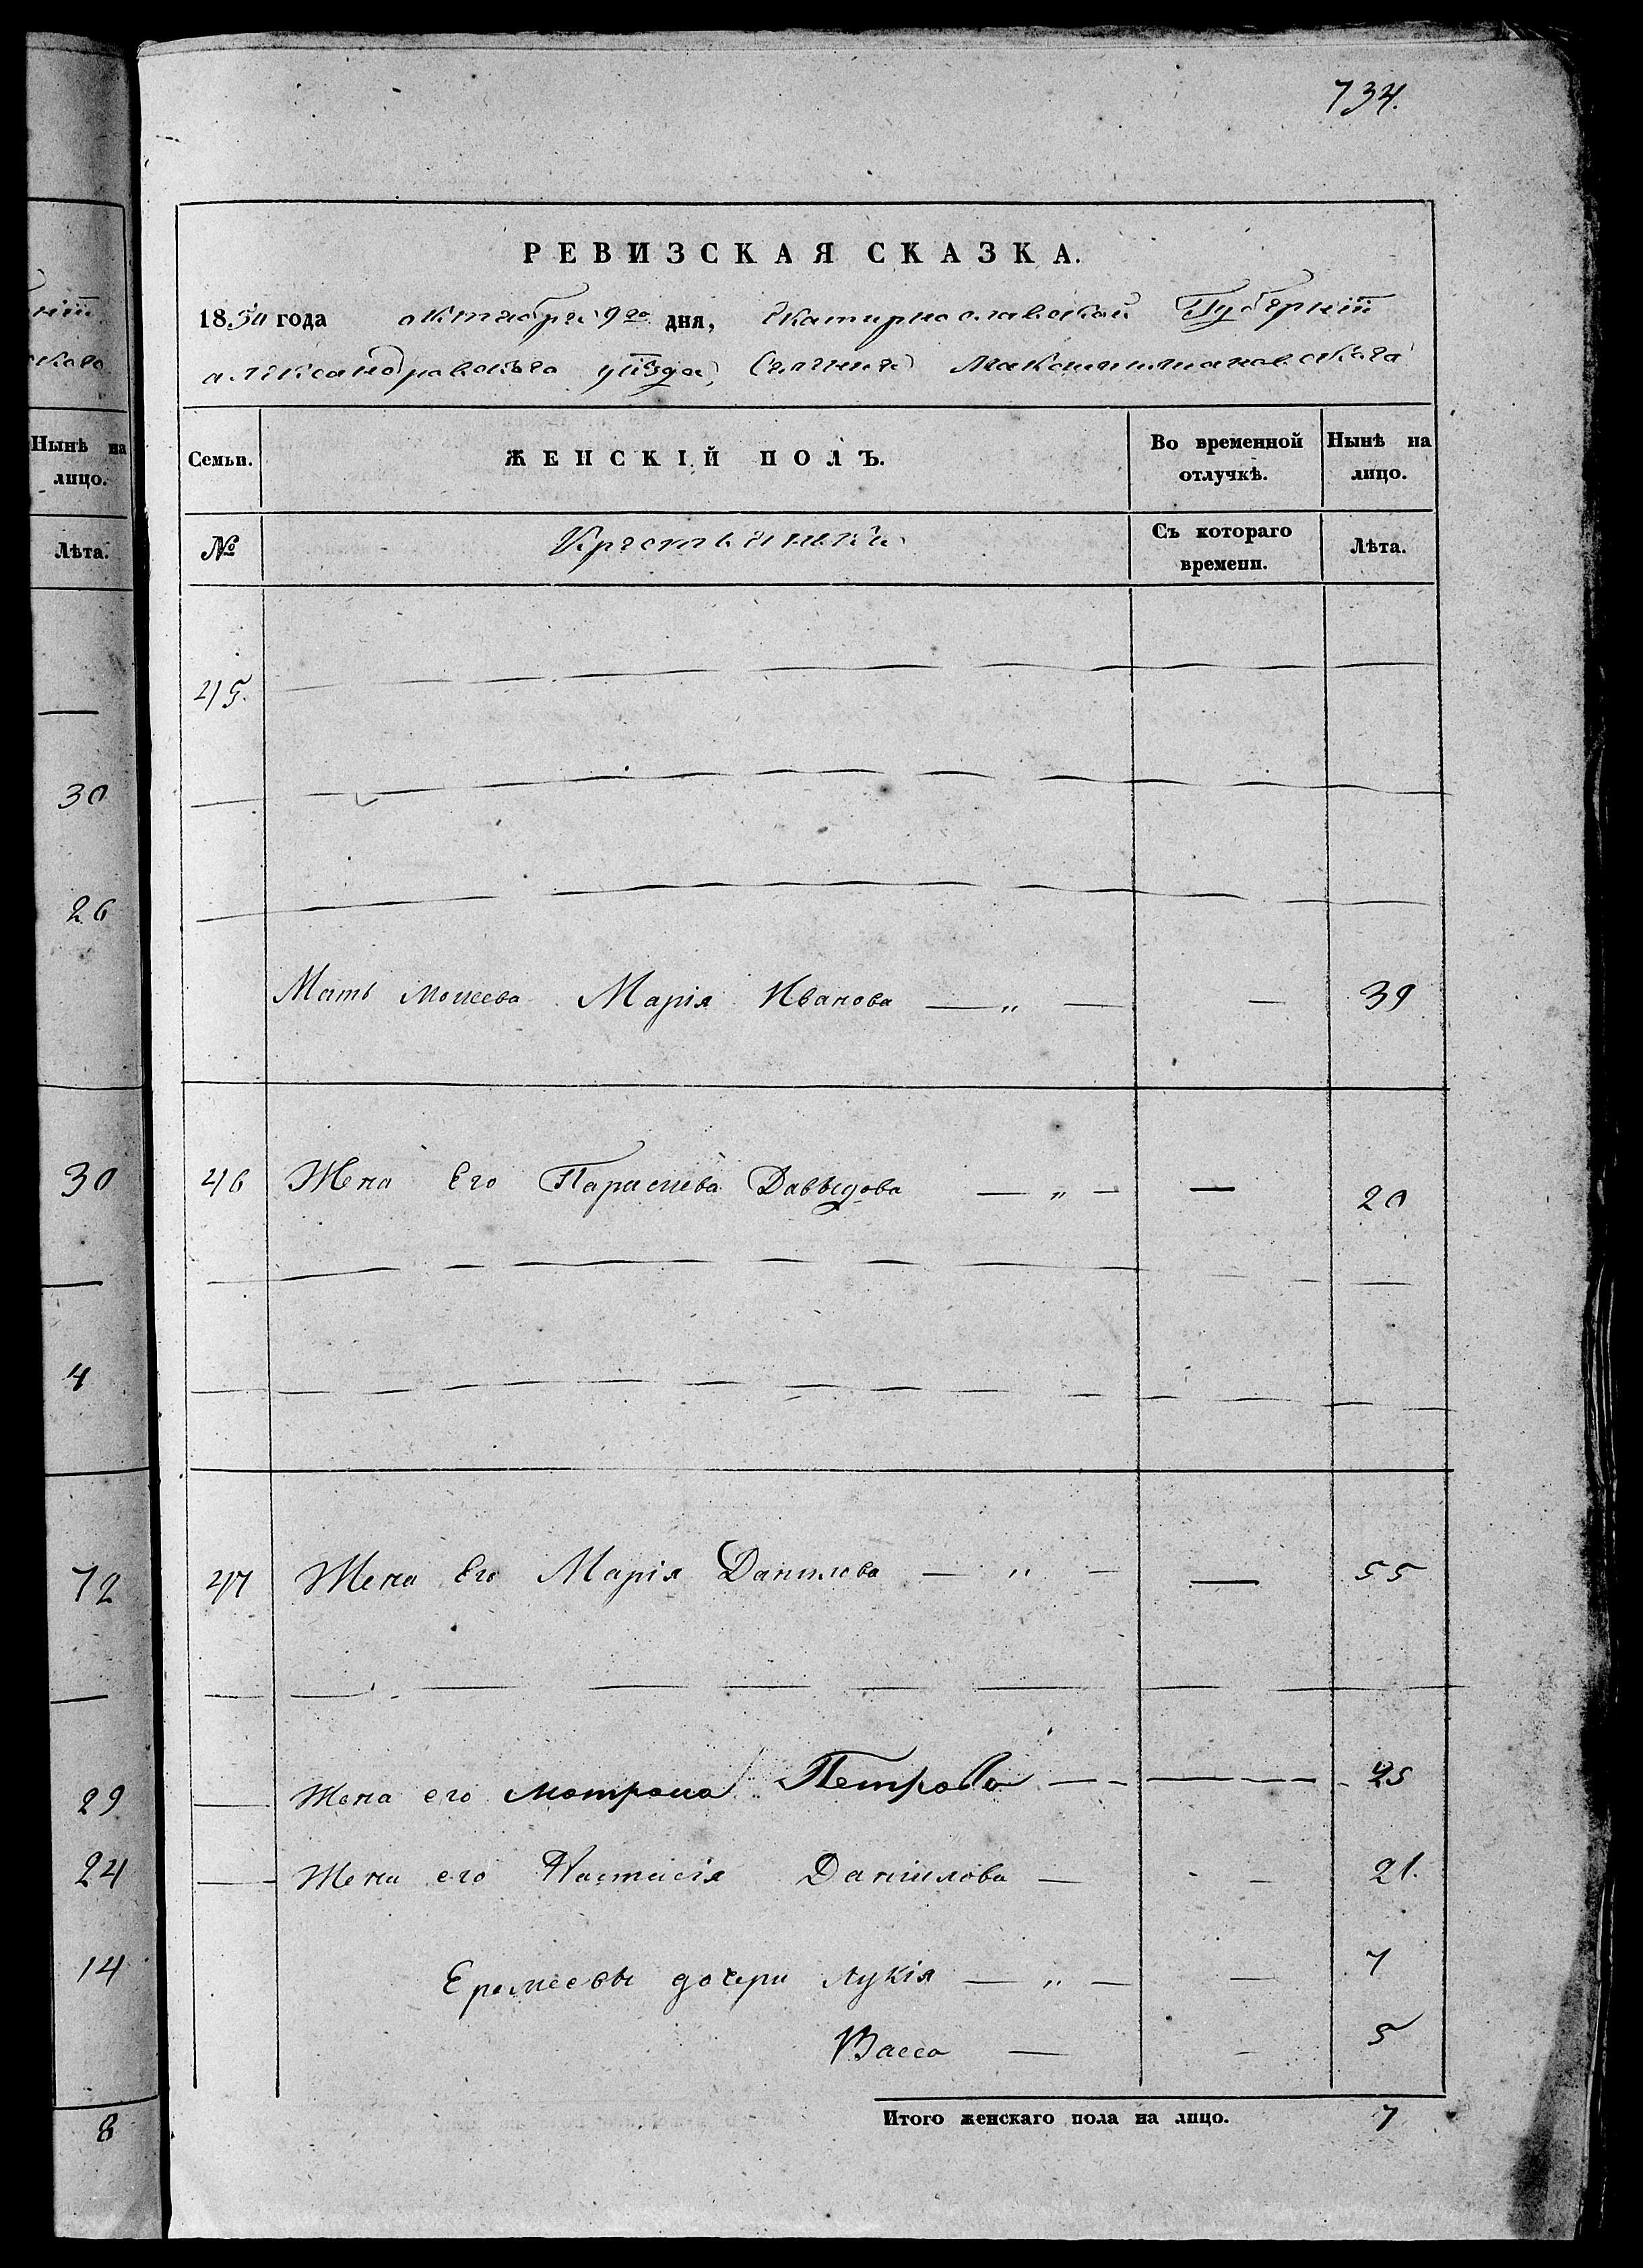 734.
РЕВИЗСКАЯ СКАЗКА.
1850 года октября 9го дня, Екатиринославской Губернiи
александровского уѣзда, Селения
Семьи. ЖЕНСКІЙ ПОЛЪ. Во временной отлучкѣ. Нынѣ на лицо.
№ Крестьянки Съ котораго времени. Лѣта.
45.
Мать Марія Иванова — „ — — 39
46 Жена Его Параскева Давыдова — „ — — 20
47 Жена Его Марія Данилова — „ — — 55
Жена его Мотрона Петрова — 25
Жена его Настасія Данилова — 21.
дочери Лукія — „ — — 7
Васса — 5
Итого женскаго пола на лицо. 7
нiи
ского
Нынѣ на
лицо.
Лѣта.
30
26
30
4
72
29
24
14
8